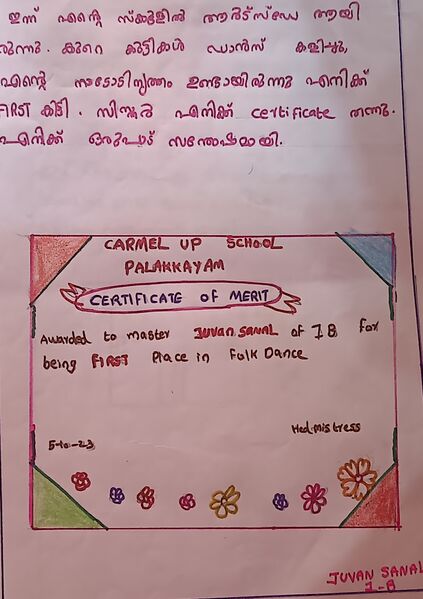 ഇന്ന് എന്റെ സ്കൂളിൽ ആർട്സ്ഡേ ആയി
രുന്നു. കുറെ കുട്ടികൾ ഡാൻസ് കളിച്ചു,
എന്റെ നാടോടിനൃത്തം ഉണ്ടായിരുന്നു എനിക്ക്
FIRST കിട്ടി. സിസ്റ്റർ എനിക്ക് certificate തന്നു.
എനിക്ക് ഒരുപാട് സന്തോഷമായി.
CARMEL UP SCHOOL
PALAKKAYAM
CERTIFICATE OF MERIT
Awarded to master JUVAN SANAL of 1B for
being FIRST Place in Folk Dance
Hed.mistress
5-10-23
JUVAN SANAL
1-B